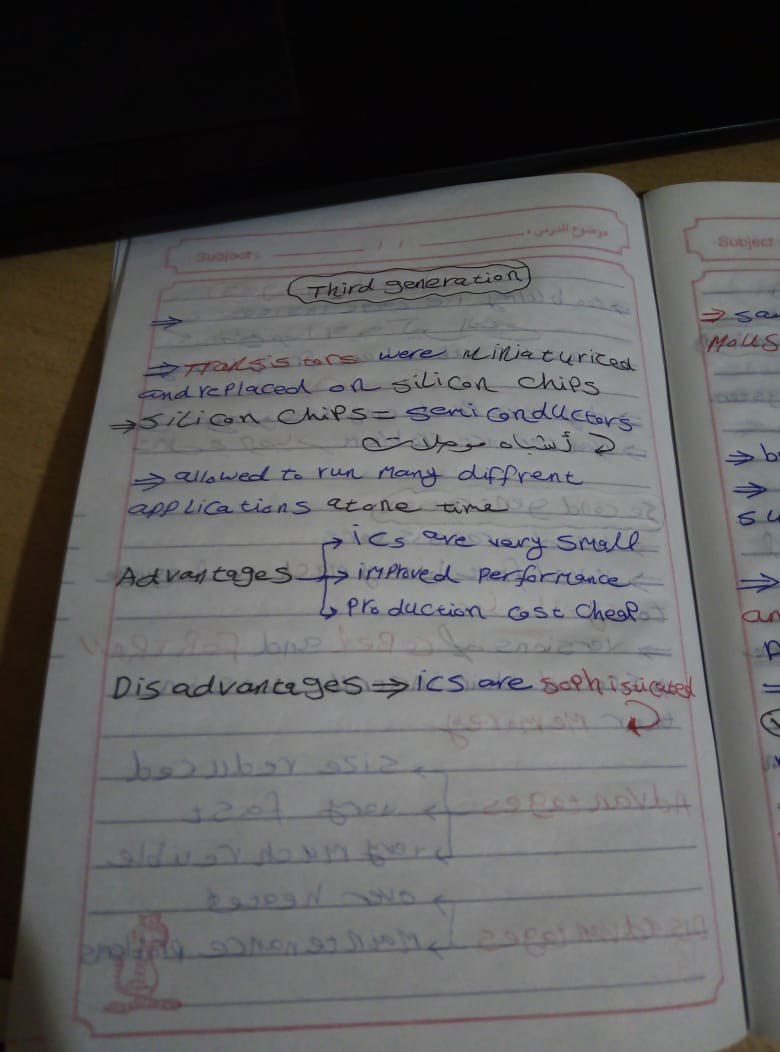 Subject: / / موضوع الدرس:
Third generation
⇒
⇒ Transistors were Miniaturized
and replaced on silicon chips
⇒ Silicon Chips = semiconductors
أشباه موصلات
⇒ allowed to run many diffrent
applications at one time
Advantages → ics are very small
→ improved performance
→ production cost cheap
Disadvantages ⇒ ics are sophisticated
Subject
⇒
Malls
⇒
⇒
⇒
an